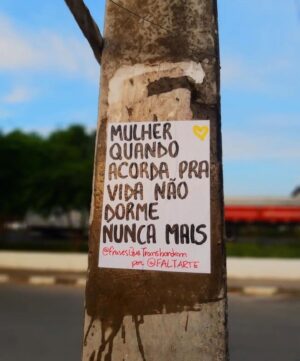 MULHER
QUANDO
ACORDA PRA
VIDA NÃO
DORME
NUNCA MAIS
@FrasesQueTransbordam
por @FALTARTE